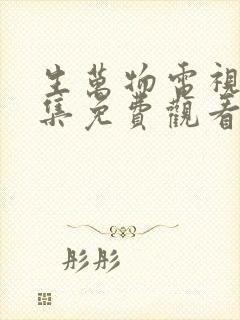 生萬物電視
集免費觀看
彤彤